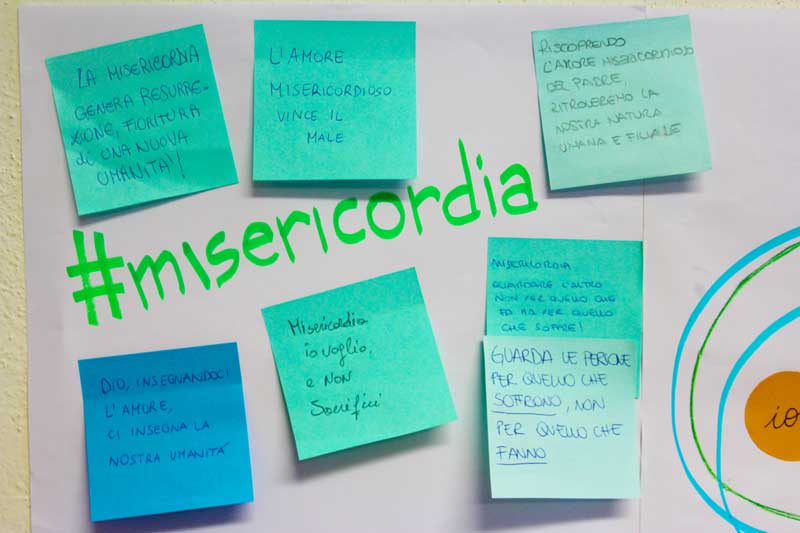 LA MISERICORDIA
GENERA RESURRE-
ZIONE, FIORITURA
di UNA NUOVA
UMANITA'!
L'AMORE
MISERICORDIOSO
VINCE IL
MALE
RISCOPRENDO
L'AMORE MISERICORDIOSO
DEL PADRE,
RITROVEREMO LA
NOSTRA NATURA
UMANA E FILIALE
#misericordia
MISERICORDIA
GUARDARE L'ALTRO
NON PER QUELLO CHE
FA MA PER QUELLO
CHE SOFFRE!
Misericordia
io voglio,
e non
Sacrifici
DIO, INSEGNANDOCI
L'AMORE,
CI INSEGNA LA
NOSTRA UMANITÁ
GUARDA LE PERSONE
PER QUELLO CHE
SOFFRONO, NON
PER QUELLO CHE
FANNO
io